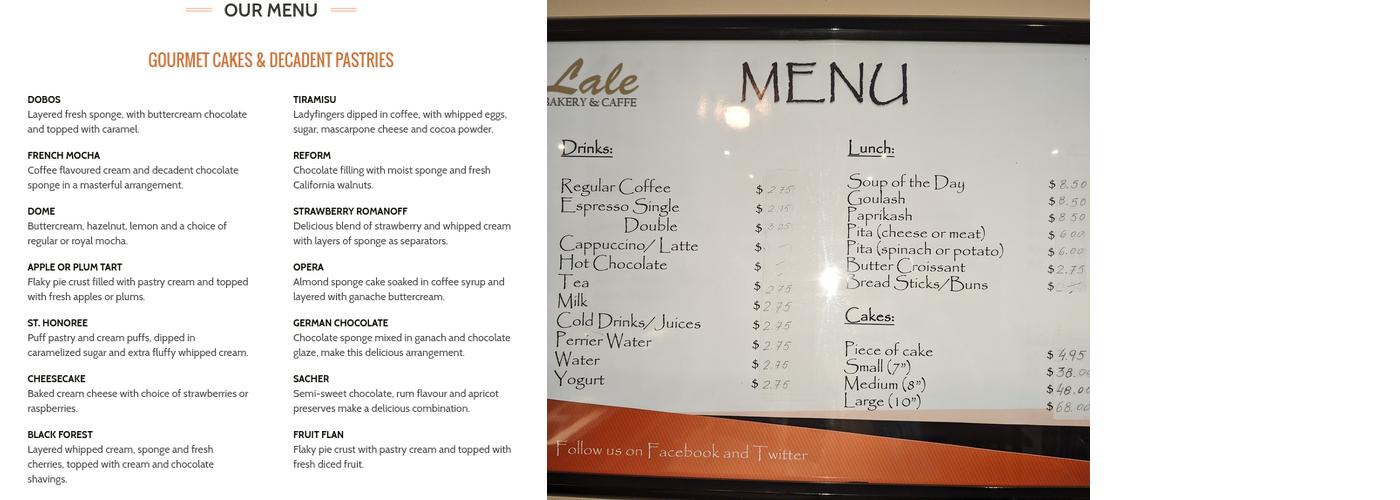 OUR MENU
GOURMET CAKES & DECADENT PASTRIES
DOBOS
Layered fresh sponge, with buttercream chocolate
and topped with caramel.
FRENCH MOCHA
Coffee flavoured cream and decadent chocolate
sponge in a masterful arrangement.
DOME
Buttercream, hazelnut, lemon and a choice of
regular or royal mocha.
APPLE OR PLUM TART
Flaky pie crust filled with pastry cream and topped
with fresh apples or plums.
ST. HONOREE
Puff pastry and cream puffs, dipped in
caramelized sugar and extra fluffy whipped cream.
CHEESECAKE
Baked cream cheese with choice of strawberries or
raspberries.
BLACK FOREST
Layered whipped cream, sponge and fresh
cherries, topped with cream and chocolate
shavings.
TIRAMISU
Ladyfingers dipped in coffee, with whipped eggs,
sugar, mascarpone cheese and cocoa powder.
REFORM
Chocolate filling with moist sponge and fresh
California walnuts.
STRAWBERRY ROMANOFF
Delicious blend of strawberry and whipped cream
with layers of sponge as separators.
OPERA
Almond sponge cake soaked in coffee syrup and
layered with ganache buttercream.
GERMAN CHOCOLATE
Chocolate sponge mixed in ganach and chocolate
glaze, make this delicious arrangement.
SACHER
Semi-sweet chocolate, rum flavour and apricot
preserves make a delicious combination.
FRUIT FLAN
Flaky pie crust with pastry cream and topped with
fresh diced fruit.
Lale
BAKERY & CAFFE
MENU
Drinks:
Regular Coffee $ 2.75
Espresso Single $ 2.95
Double $ 3.25
Cappuccino/ Latte $
Hot Chocolate $
Tea $ 2.75
Milk $ 2.75
Cold Drinks/Juices $ 2.75
Perrier Water $ 2.75
Water $ 2.75
Yogurt $ 2.75
Lunch:
Soup of the Day $ 8.50
Goulash $ 8.50
Paprikash $ 8.50
Pita (cheese or meat) $ 6.00
Pita (spinach or potato) $ 6.00
Butter Croissant $ 2.75
Bread Sticks/Buns $
Cakes:
Piece of cake $ 4.95
Small (7") $ 38.00
Medium (8") $ 48.00
Large (10") $ 68.00
Follow us on Facebook and Twitter